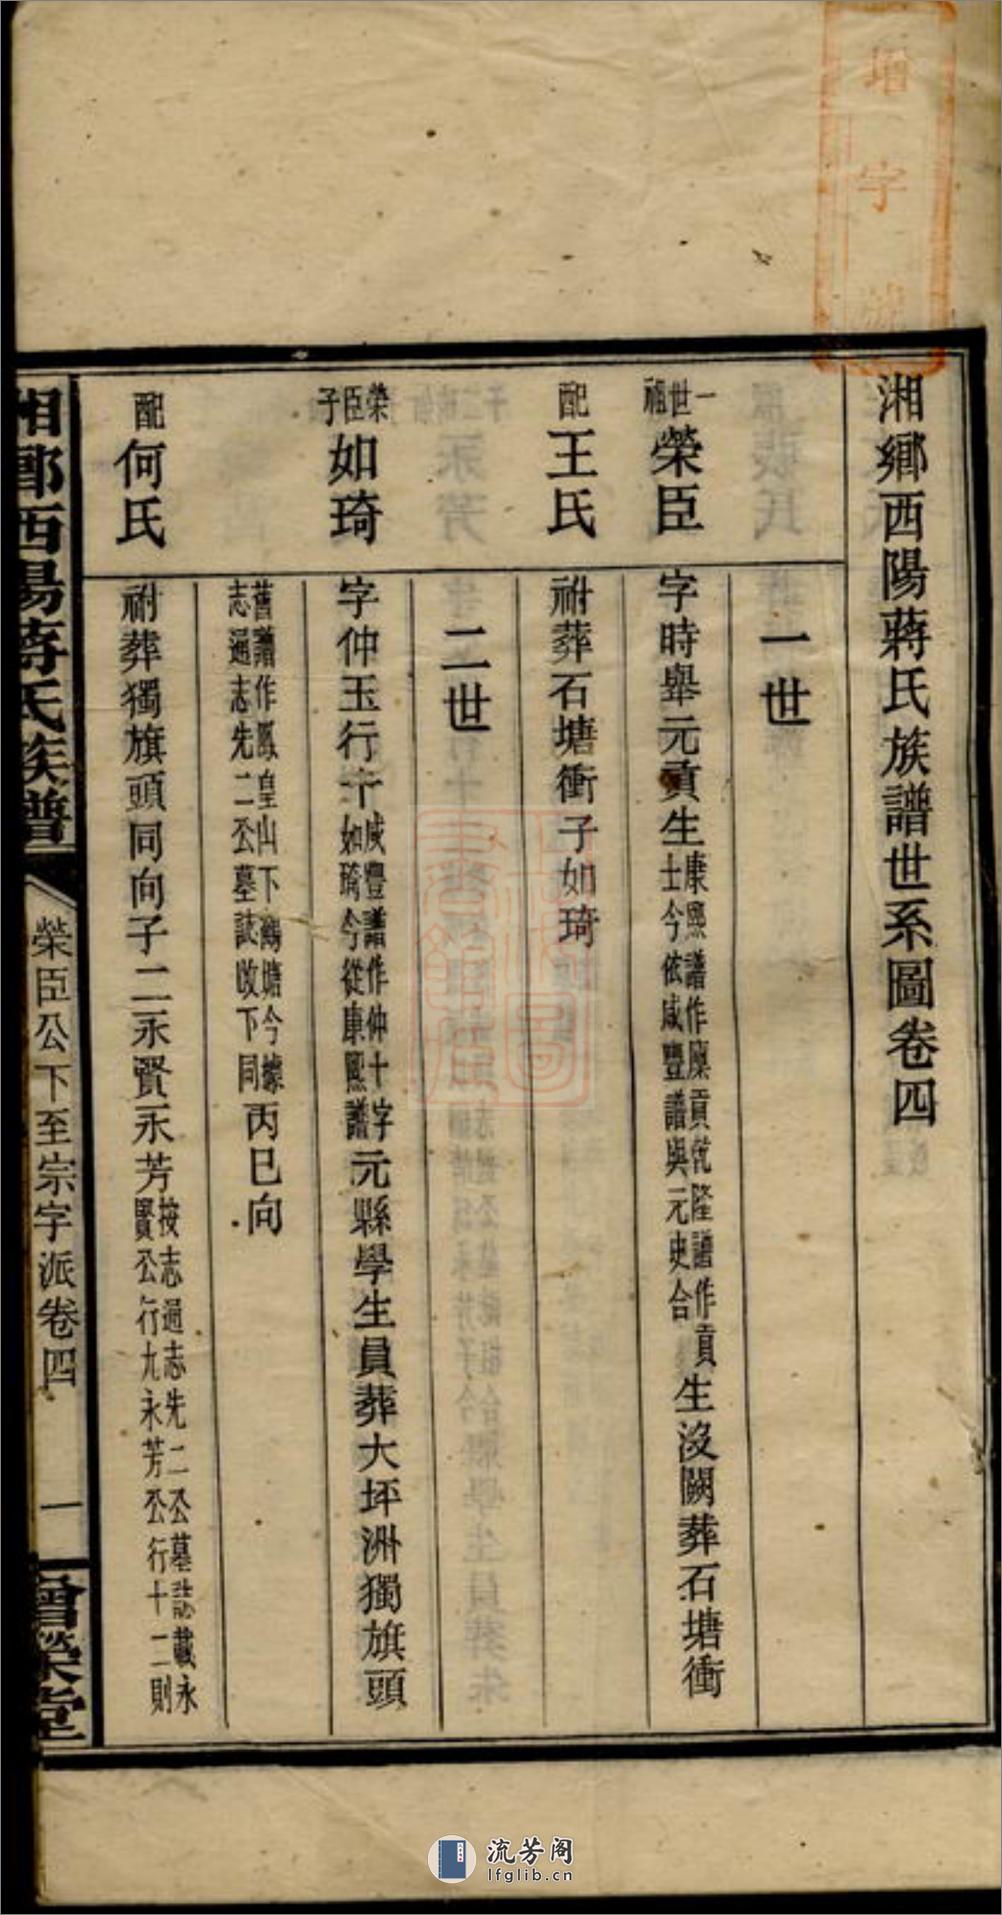 增字號
湘鄉西陽蔣氏族譜世系圖卷四
一世
一世祖榮臣
字時舉元貢生康熙譜作廩貢乾隆譜作貢士今依咸豐譜與元史合生沒闕葬石塘衝
配王氏
祔葬石塘衝子如琦
二世
榮臣子如琦
字仲玉行十咸豐譜作仲十字如琦今從康熙譜元縣學生員葬大坪洲獨旗頭
舊譜作鳳皇山下鶴塘今據志通志先二公墓誌改下同丙巳向
配何氏
祔葬獨旗頭同向子二永賢永芳按志通志先二公墓誌載永賢公行九永芳公行十二則
湘鄉西陽蔣氏族譜
榮臣公下至宗字派卷四
一
曾榮堂
流芳阁
lfglib.cn